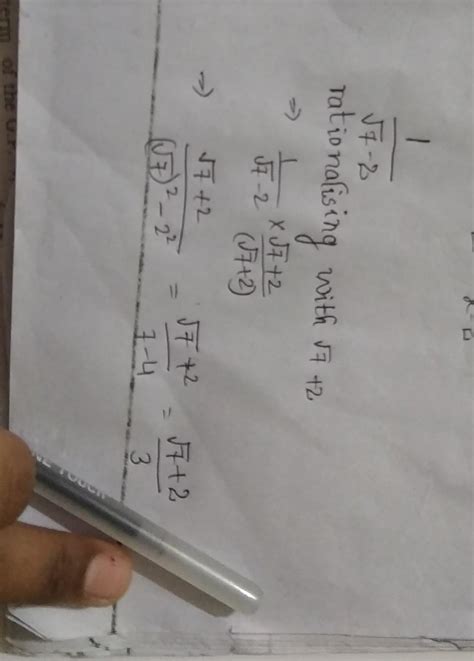 1/(√7-2)
rationalising with √7+2
⇒ 1/(√7-2) × (√7+2)/(√7+2)
⇒ (√7+2)/((√7)²-2²) = (√7+2)/(7-4) = (√7+2)/3
term of the